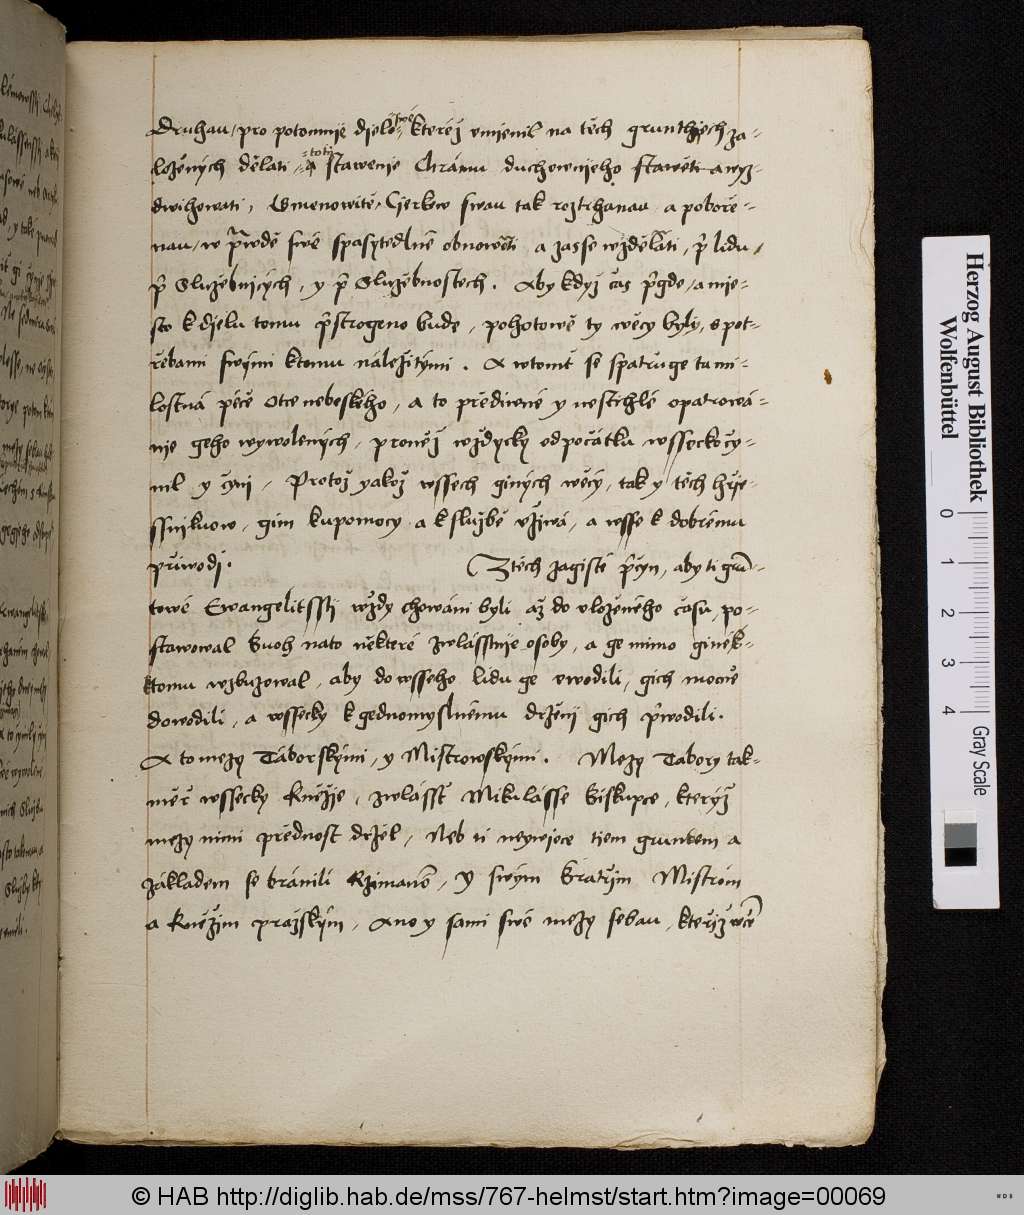 Druhau, pro potomnie dielo swé kteréž vmienil na těch grunthiech za-
ložených dělati, totiž stawenie Chrámu duchownieho stawěti a wyz-
dwihowati, Gmenowitě, Cierkew swau tak roztrhanau a pobořе-
nau, w prawdě swé spasytedlné obnowěti a zasse wzdělati, při lidu,
při Služebnicých, y při Služebnostech. Aby když čas přigde, a mie-
sto k dielu tomu přistrogeno bude, pohotowě ty wěcy byly, s pot-
řebami swými k tomu náležitými. A w tomť se spatřuge ta mi-
lostná péče Otce nebeského, a to přediwné y nestihlé opatrowá-
nie geho wywolených, proněž wzdycky od počátku wssecko čy-
nil y čyní, Protož yakož wssech giných wěcý, tak y těch hřie-
ssnikuow, gim ku pomocy a k službě vžiwá, a wsse k dobrému
přiwodí. Z těch zagisté přičyn, aby ti grun-
towé Ewangelitsstí wždy chowáni byli až do vloženého času, po-
stawowal Buoh na to některé zwlásstnie osoby, a ge mimo giné k-
k tomu wzbuzowal, aby do wsseho lidu ge vwodili, gich mocně
dowodili, a wssecky k gednomyslnému držení gich přiwodili.
A to mezy Táborskými, y Mistrowskými. Mezy Tabory tak-
měř wssecky Kněžie, zwlásstě Mikulásse Biskupce, kterýž
mezy nimi přednost držel, Neb ti neywiece tiem gruntem a
základem se bránili Rzimanom, y swým Bratřim Mistróm
a Kněžim pražským, Ano y sami swé mezy sebau, kteřiž wice
Herzog August Bibliothek
Wolfenbüttel
0 1 2 3 4 Gray Scale
© HAB http://diglib.hab.de/mss/767-helmst/start.htm?image=00069